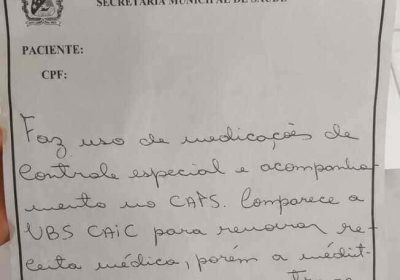 SECRETARIA MUNICIPAL DE SAÚDE
PACIENTE:
CPF:
Faz uso de medicações de
controle especial e acompanha-
mento no CAPS. Comparece a
UBS CAIC para renovar re-
ceita médica, porém a